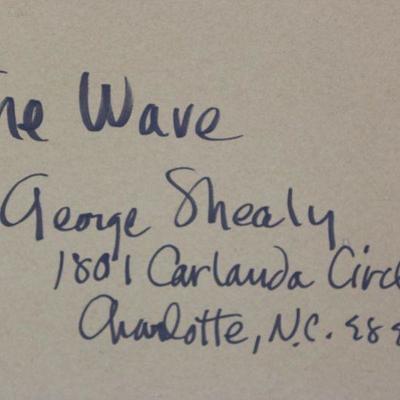 The Wave
George Shealy
1801 Carlanda Circ
Charlotte, N.C. 282